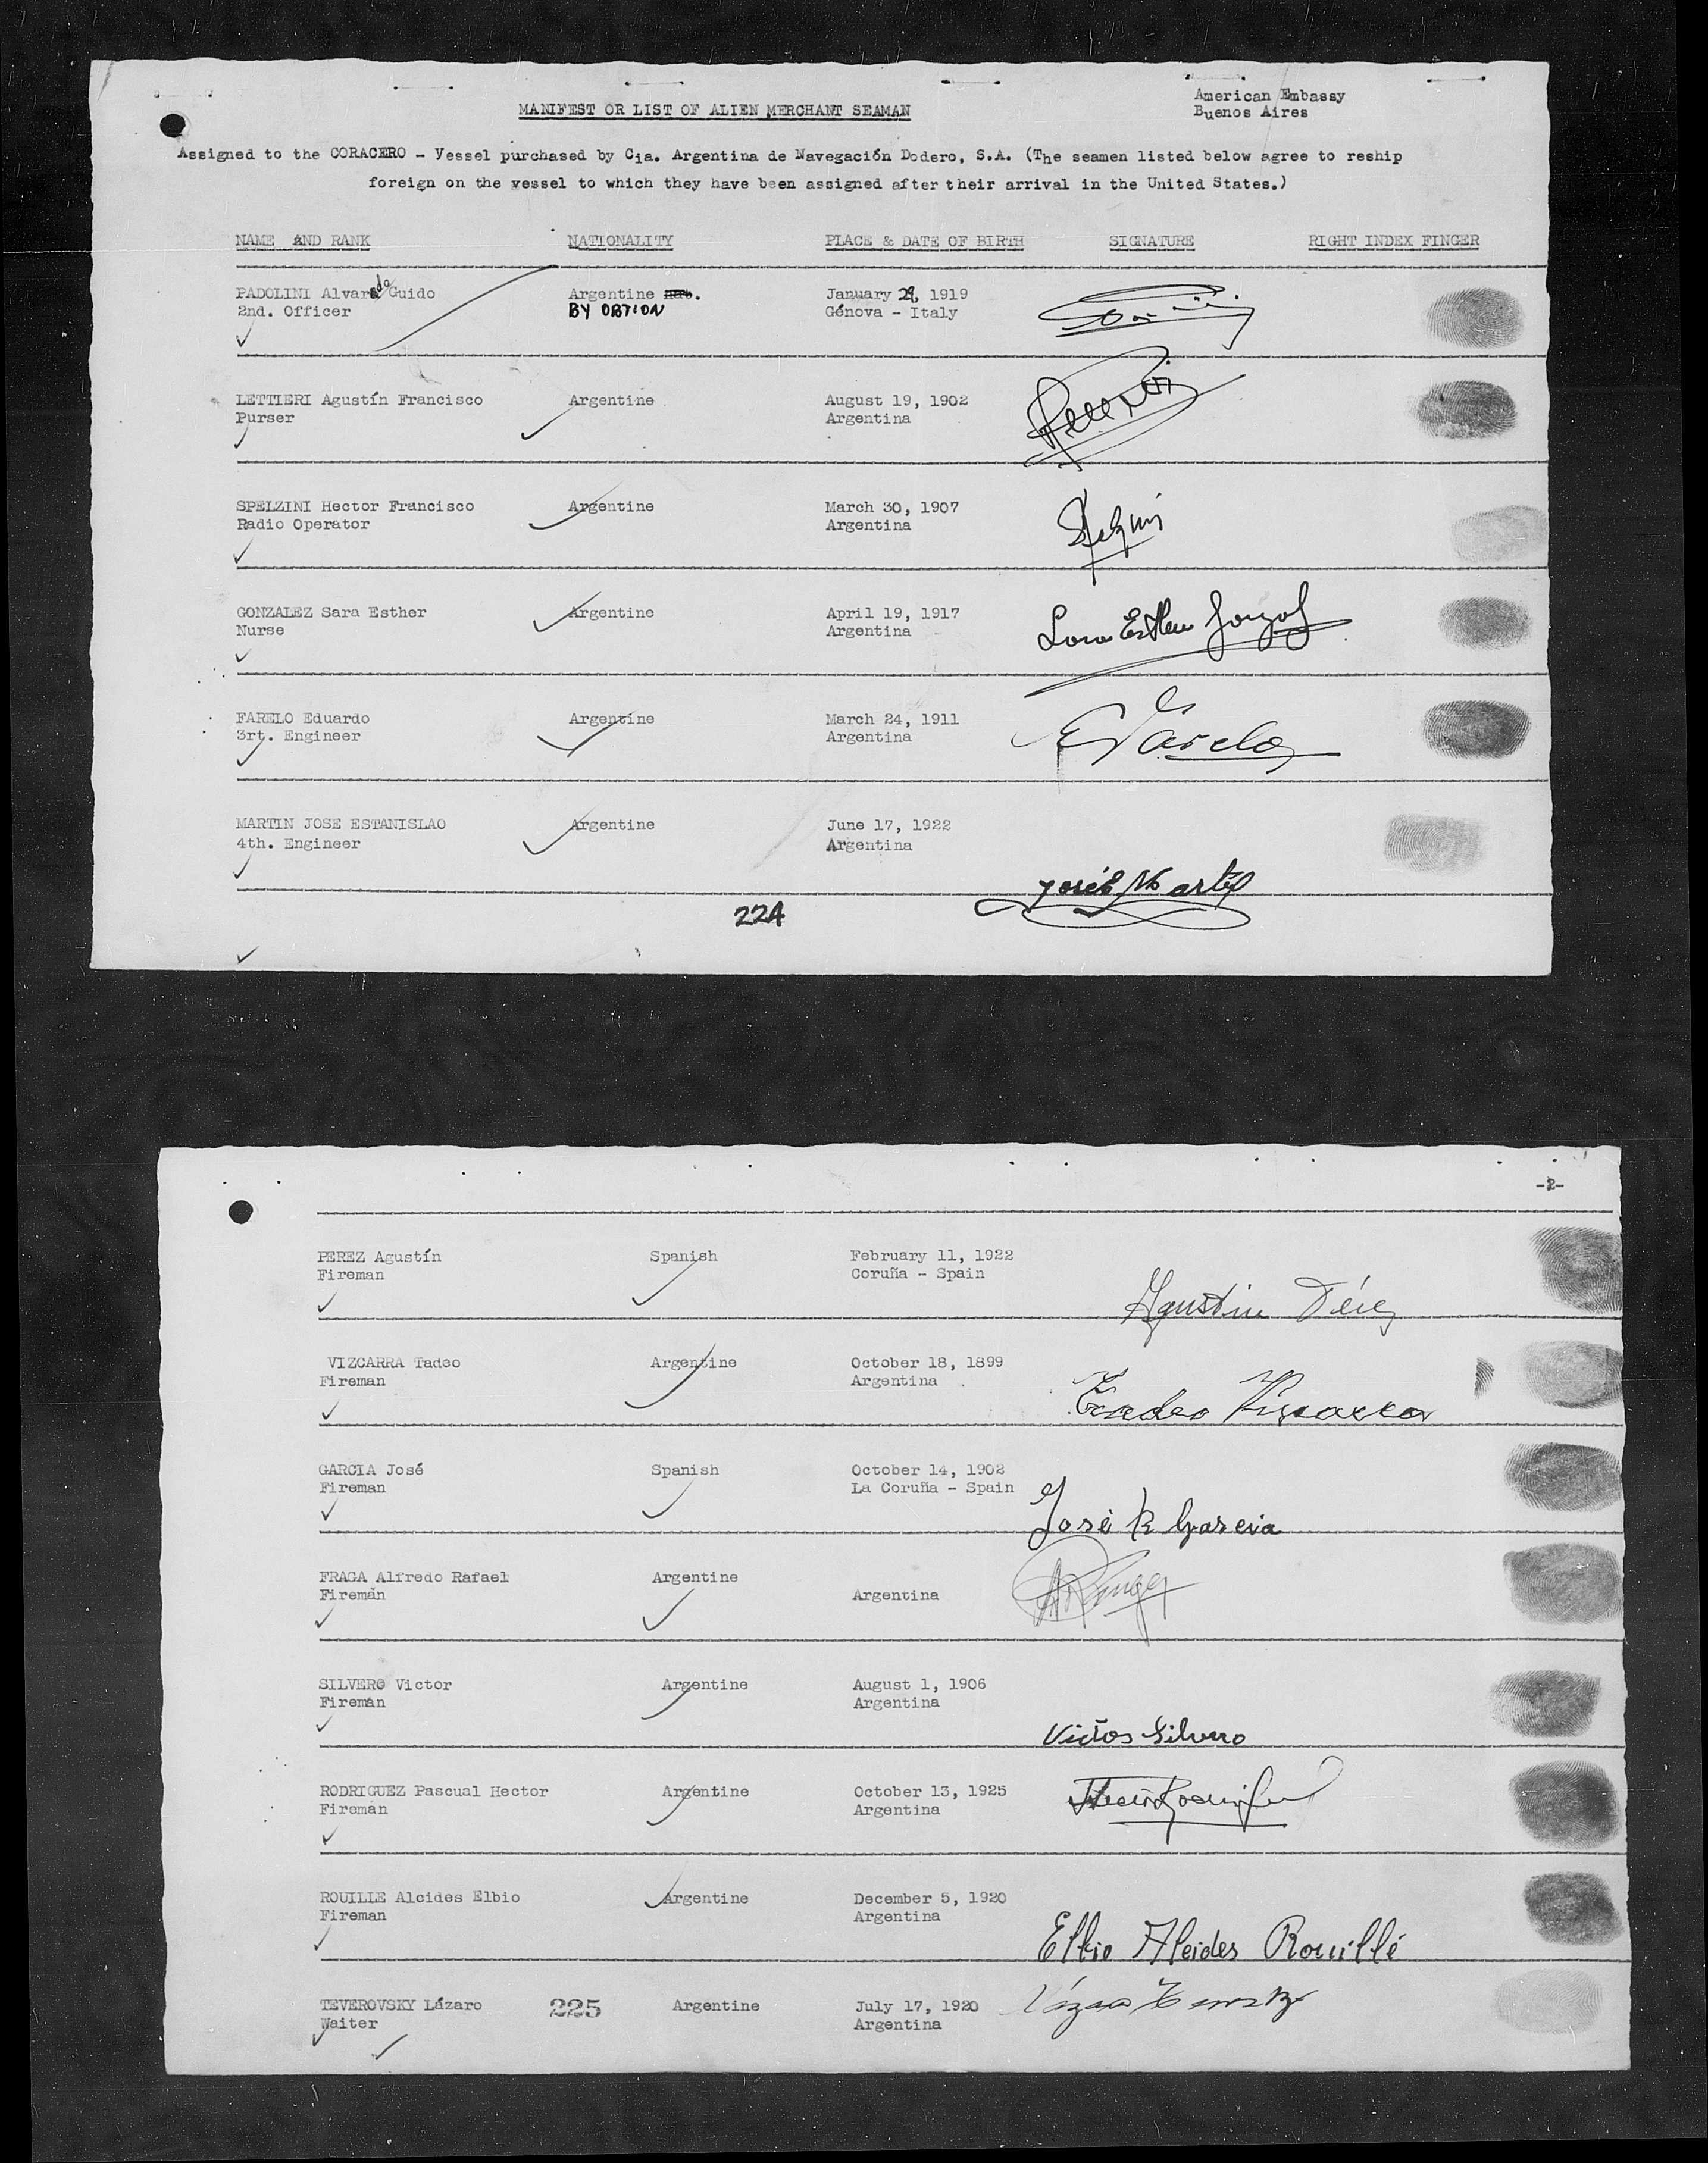 American Embassy
Buenos Aires
MANIFEST OR LIST OF ALIEN MERCHANT SEAMAN
Assigned to the CORACERO - Vessel purchased by Cia. Argentina de Navegación Dodero, S.A. (The seamen listed below agree to reship
foreign on the vessel to which they have been assigned after their arrival in the United States.)
NAME AND RANK NATIONALITY PLACE & DATE OF BIRTH SIGNATURE RIGHT INDEX FINGER
PADOLINI Alvaro Guido Argentine January 29, 1919
2nd. Officer BY OBTION Génova - Italy
LETTIERI Agustín Francisco Argentine August 19, 1902
Purser Argentina
SPELZINI Hector Francisco Argentine March 30, 1907
Radio Operator Argentina
GONZALEZ Sara Esther Argentine April 19, 1917
Nurse Argentina
Sara Esther Gonzalez
FARELO Eduardo Argentine March 24, 1911
3rt. Engineer Argentina
E Farelo
MARTIN JOSE ESTANISLAO Argentine June 17, 1922
4th. Engineer Argentina
José E Martin
224
-2-
PEREZ Agustín Spanish February 11, 1922
Fireman Coruña - Spain
Agustin Pérez
VIZCARRA Tadeo Argentine October 18, 1899
Fireman Argentina
Tadeo Viscarra
GARCIA José Spanish October 14, 1902
Fireman La Coruña - Spain
José R Garcia
FRAGA Alfredo Rafael Argentine
Firemán Argentina
SILVERO Victor Argentine August 1, 1906
Firemán Argentina
Victor Silvero
RODRIGUEZ Pascual Hector Argentine October 13, 1925
Fireman Argentina
Hector Rodriguez
ROUILLE Alcides Elbio Argentine December 5, 1920
Fireman Argentina
Elbio Alcides Rouillé
TEVEROVSKY Lázaro 225 Argentine July 17, 1920
Waiter Argentina